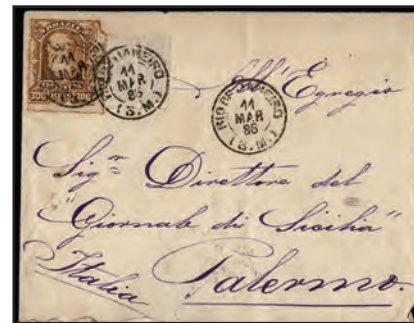 RIO DE JANEIRO
11
MAR
86
(S.M.)
RIO DE JANEIRO
11
MAR
86
(S.M.)
All'Egregio
Sigr Direttore del
"Giornale di Sicilia"
Palermo.
Italia